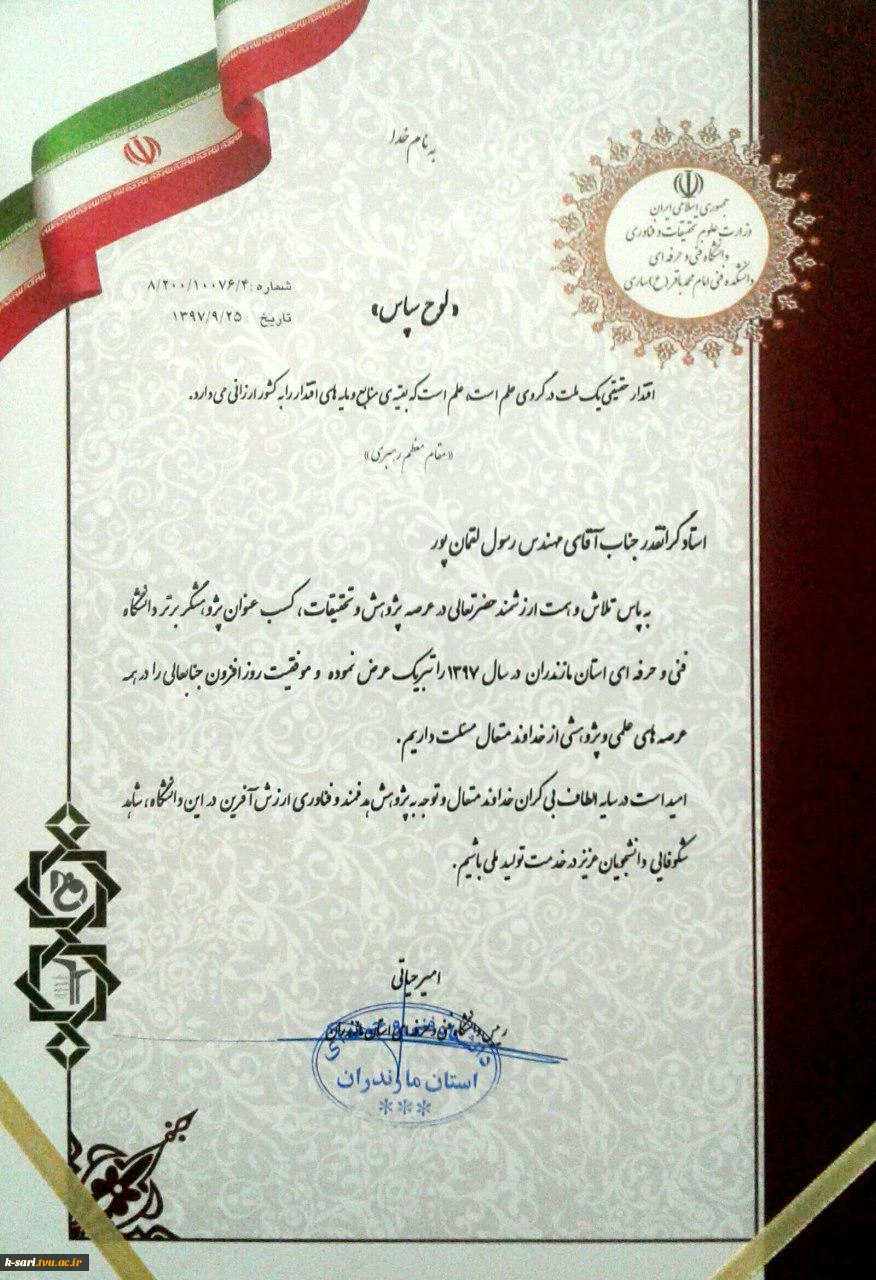 به نام خدا
جمهوری اسلامی ایران
وزارت علوم تحقیقات و فناوری
دانشگاه فنی و حرفه ای
دانشکده فنی امام محمد باقر (ع) ساری
شماره: ۸/۲۰۰/۱۰۰۷۶/۴
تاریخ : ۱۳۹۷/۹/۲۵
«لوح سپاس»
اقتدار حقیقی یک ملت در گروی علم است، علم است که بقیه ی منابع و مایه های اقتدار را به کشور ارزانی می دارد.
«مقام معظم رهبری»
استاد گرانقدر جناب آقای مهندس رسول لقمان پور
به پاس تلاش و همت ارزشمند حضرتعالی در عرصه پژوهش و تحقیقات، کسب عنوان پژوهشگر برتر دانشگاه
فنی و حرفه ای استان مازندران در سال ۱۳۹۷ را تبریک عرض نموده و موفقیت روز افزون جنابعالی را در همه
عرصه های علمی و پژوهشی از خداوند متعال مسئلت داریم.
امید است در سایه الطاف بی کران خداوند متعال و توجه به پژوهش هدفمند و فناوری ارزش آفرین در این دانشگاه، شاهد
شکوفایی دانشجویان عزیز در خدمت تولید ملی باشیم.
امیر حیاتی
رئیس دانشگاه فنی و حرفه ای استان مازندران
استان مازندران
***
k-sari.tvu.ac.ir